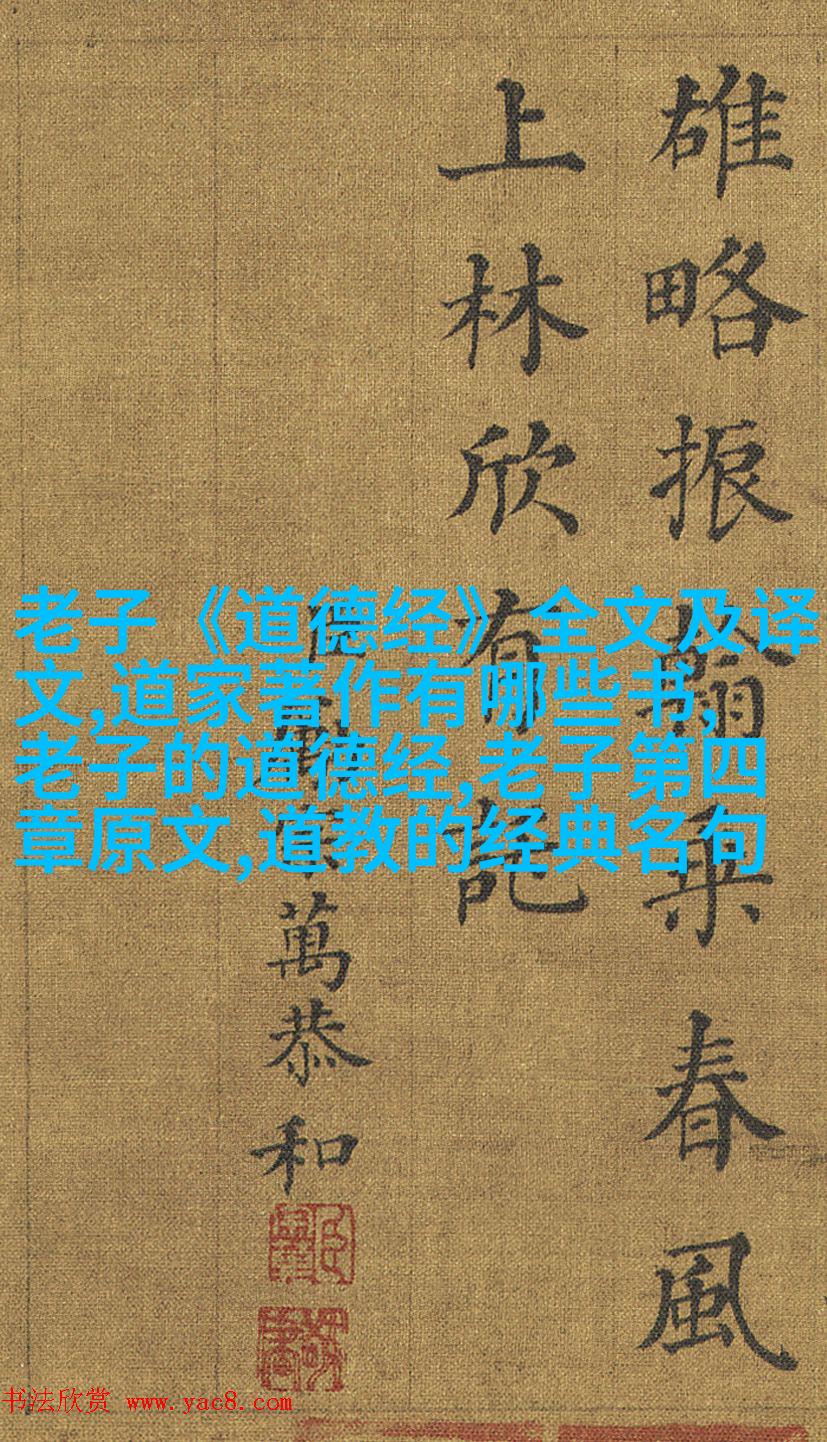 老子《道德经》全文及译
文,道家著作有哪些书,
老子的道德经,老子第四
章原文,道教的经典名句
雄略振春風
上林欣有託
萬恭和
书法欣赏 www.yac8.com